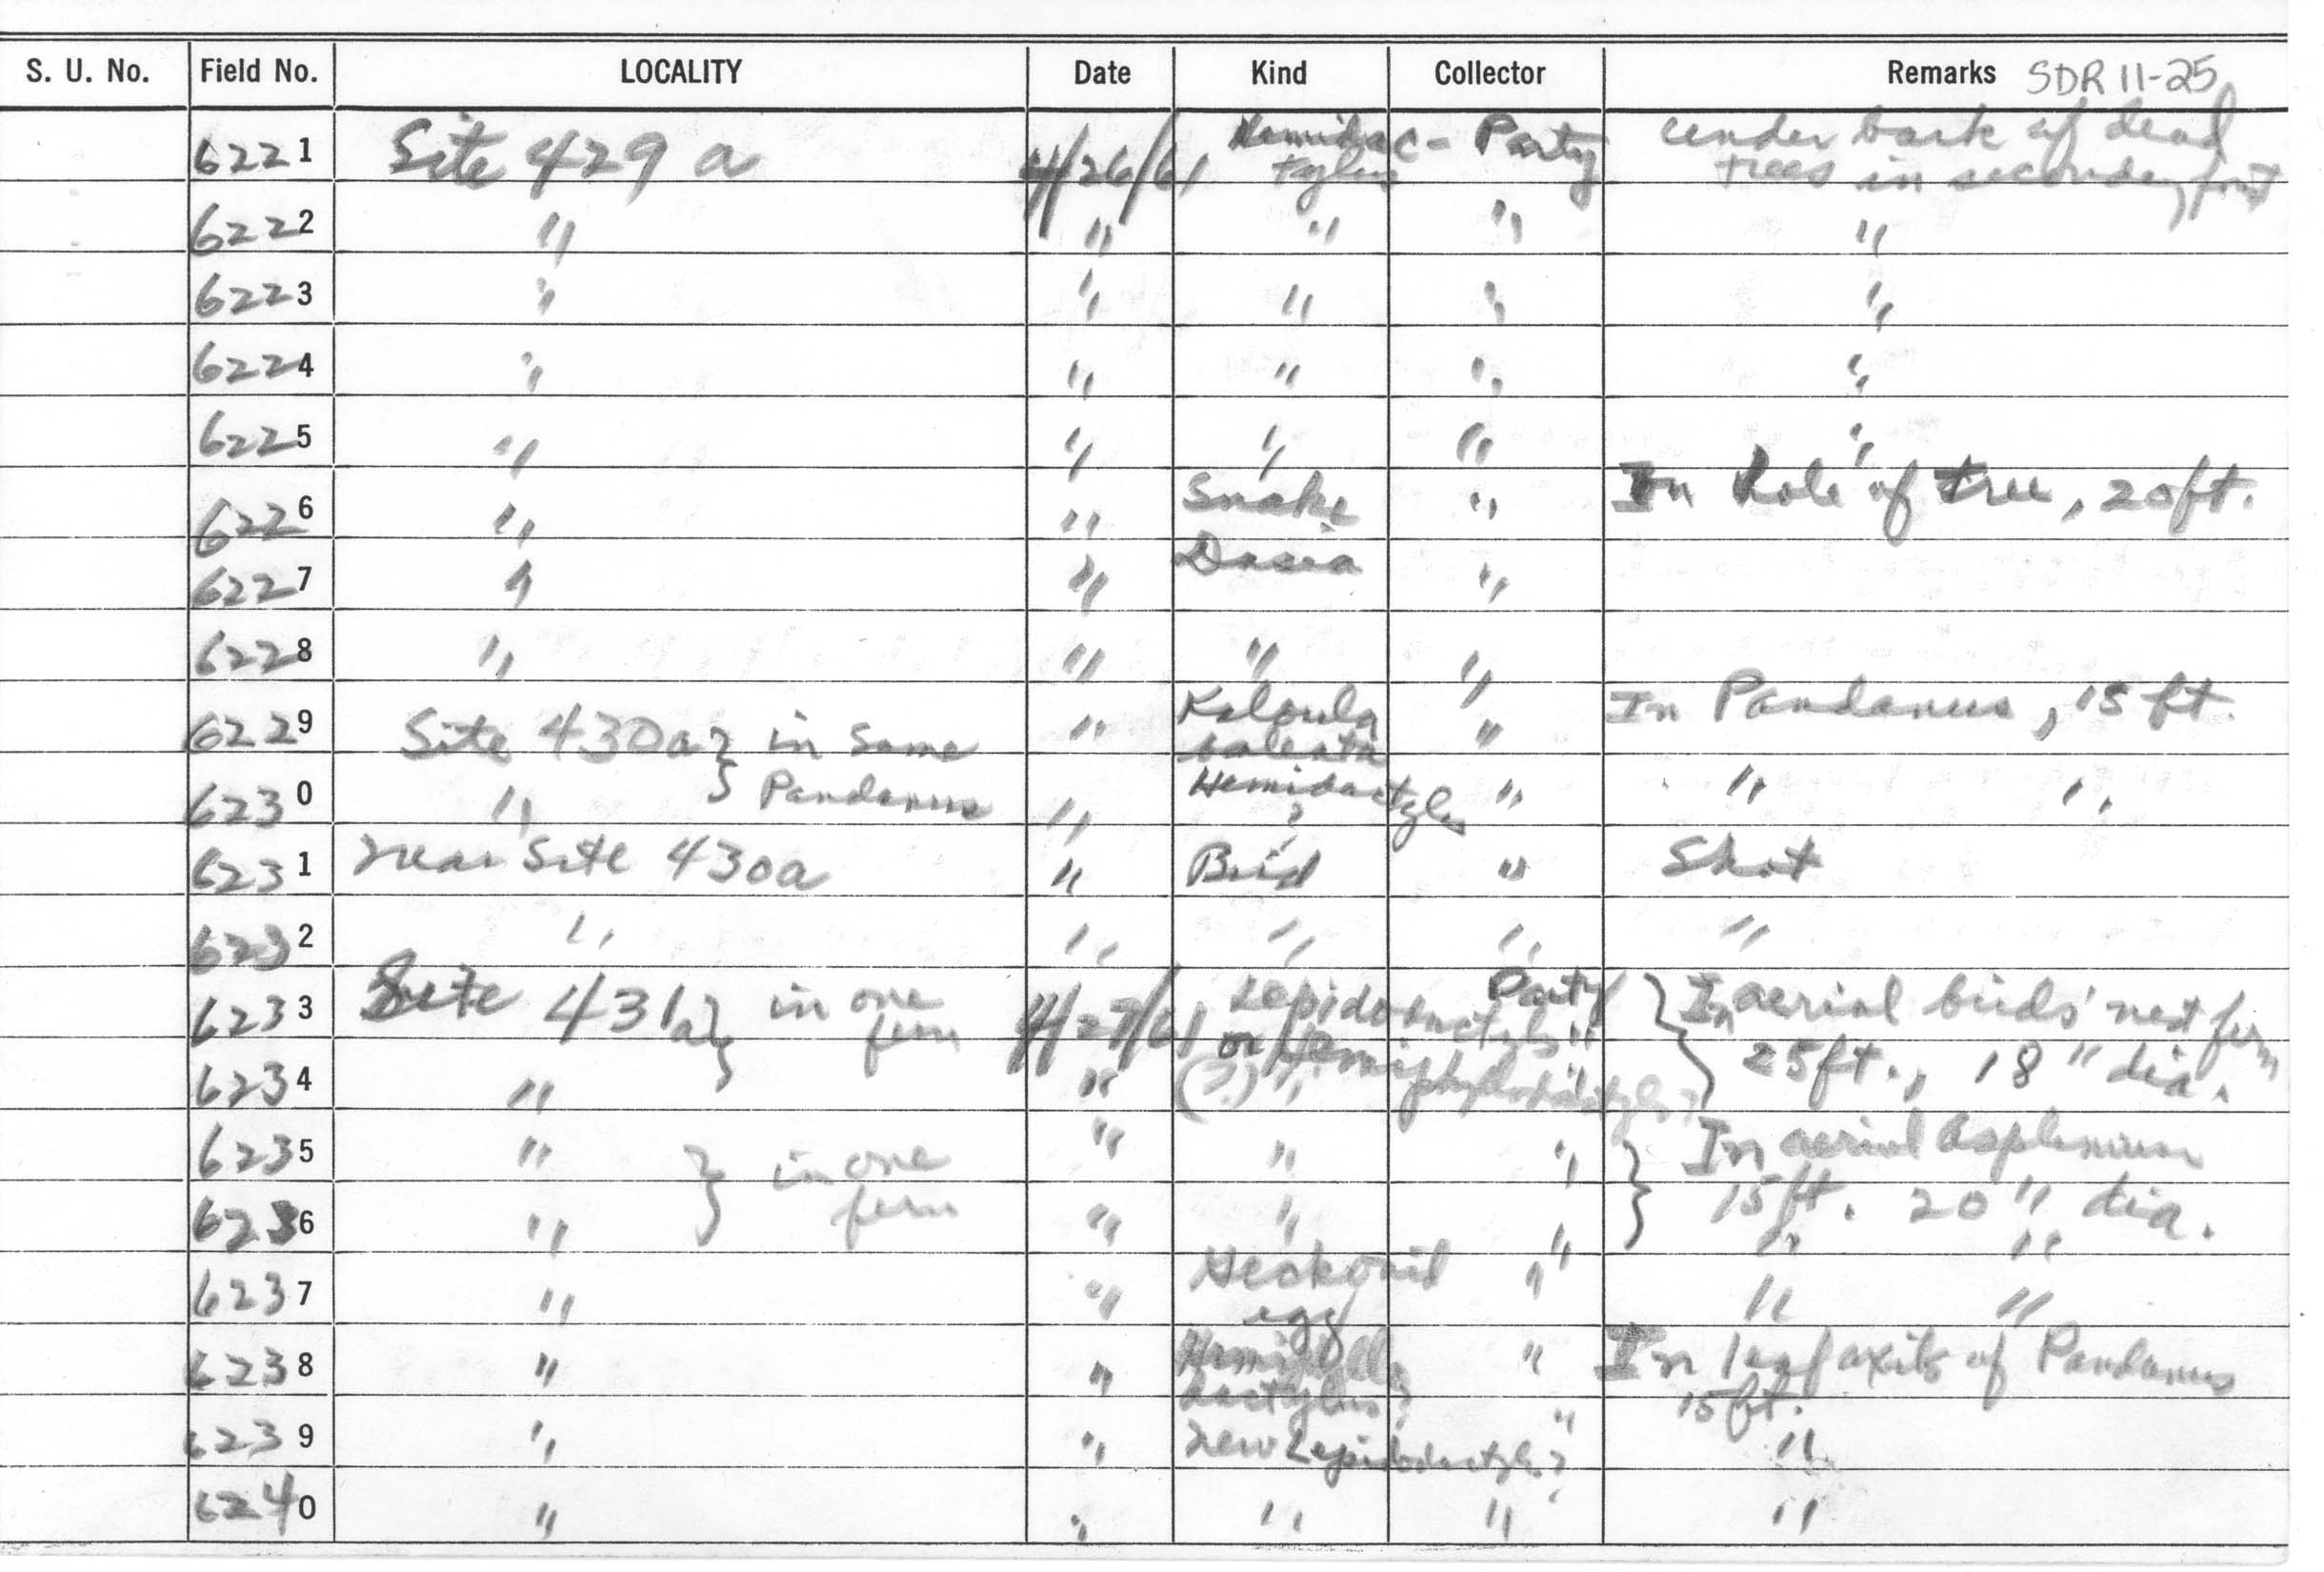 S. U. No. Field No. LOCALITY Date Kind Collector Remarks SDR 11-25
6221 Site 429 a 4/26/61 Hemidac- Party under bark of dead
tylus trees in secondary forest
6222 " " " " "
6223 " " " " "
6224 " " " " "
6225 " " " " "
6226 " " Snake " In hole of tree, 20 ft.
6227 " " Dasia "
6228 " " " "
6229 Site 430a } in same " Kaloula " In Pandanus, 15 ft.
baleata
6230 " } Pandanus " Hemidactylus " " "
?
6231 near Site 430a " Bird " Shot
6232 " " " " "
6233 Site 431a } in one 4/27/61 Lepidodactylus Party } In aerial birds' nest fern
fern or Hemiphyllodactylus? "
6234 " " (?) " " 25 ft., 18" dia.
6235 " } in one " " " } In aerial Asplenium
6236 " fern " " " 15 ft. 20" dia.
" "
6237 " " Geckonid " " "
egg
6238 " " " In leaf axils of Pandanus
dactylus? 15 ft.
6239 " " new Lepidodactylus? " "
6240 " " " " "